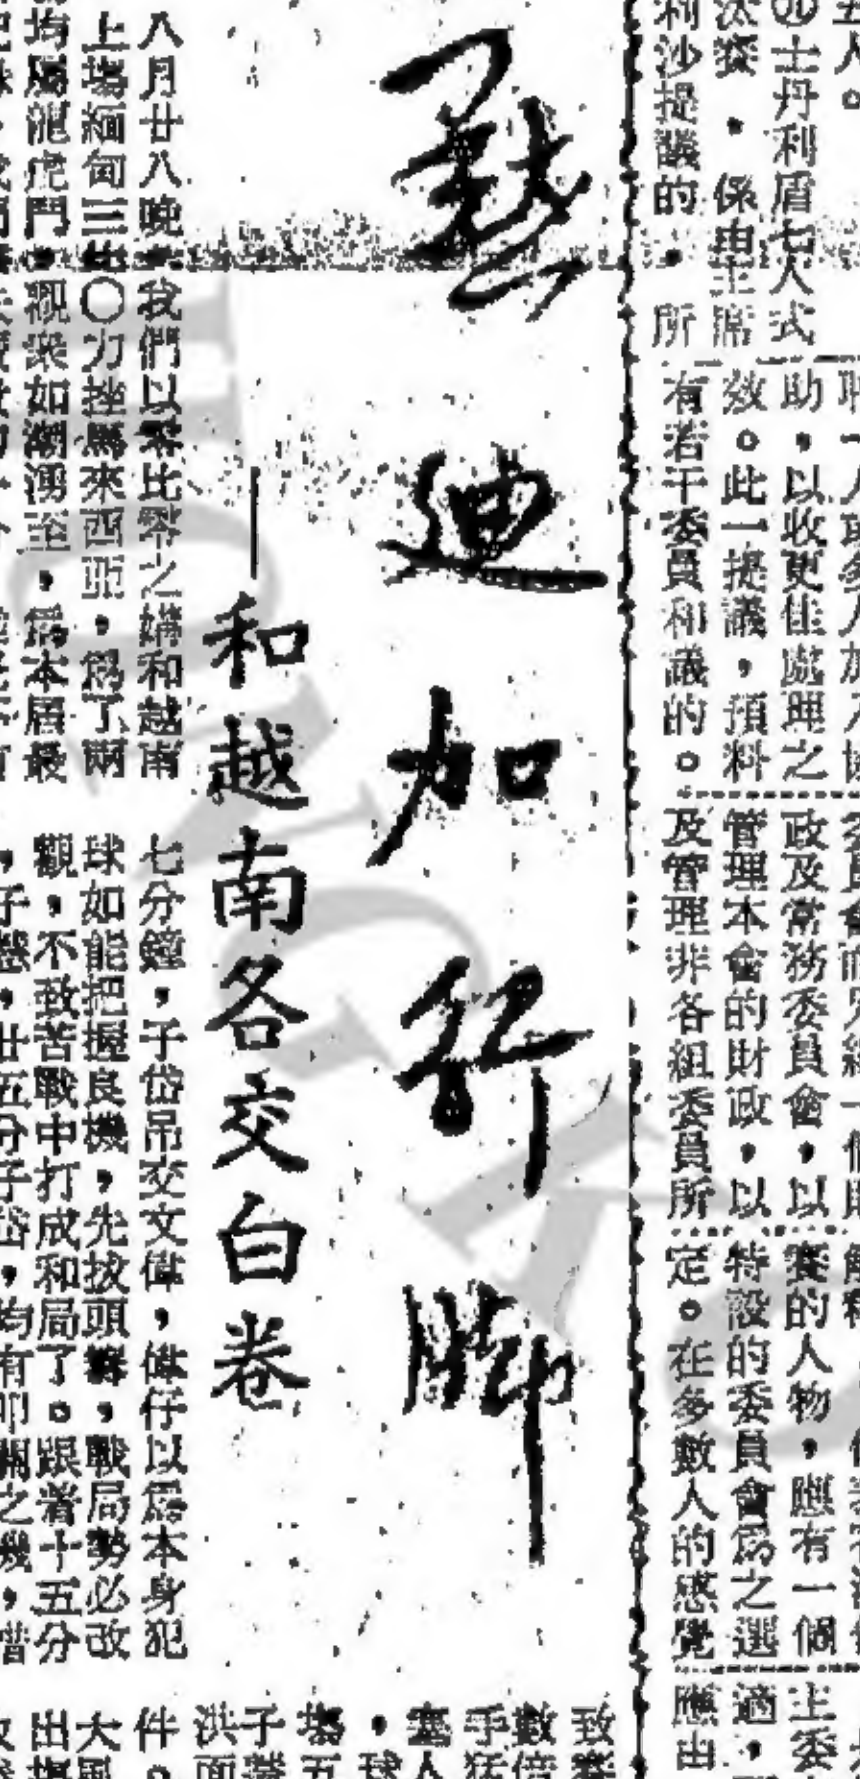 五人。
士丹利盾七人式
汰賽，係由主席
利沙提議的，所
助，以收更佳處理之
效。此一提議，預料
有若干委員和議的。
政及常務委員會，以
管理本會的財政，以
及管理非各組委員所
賽的人物，應有一個
特設的委員會爲之選
定。在多數人的感覺
主委
適，
應由
默迪加行脚
——和越南各交白卷
八月廿八晚，我們以零比零之媾和越南
上塲緬甸三比〇力挫馬來西亞，爲了兩
均屬龍虎鬥，觀衆如潮湧至，爲本屆最
七分鐘，子岱吊交文偉，偉仔以爲本身犯
球如能把握良機，先拔頭籌，戰局勢必改
觀，不致苦戰中打成和局了。跟着十五分
，仔懋，廿五分子岱，均有叩關之機，惜
致賽
數倍
手猛
塞人
，球
塲五
子蕩
洪面
件。
大風
出塲